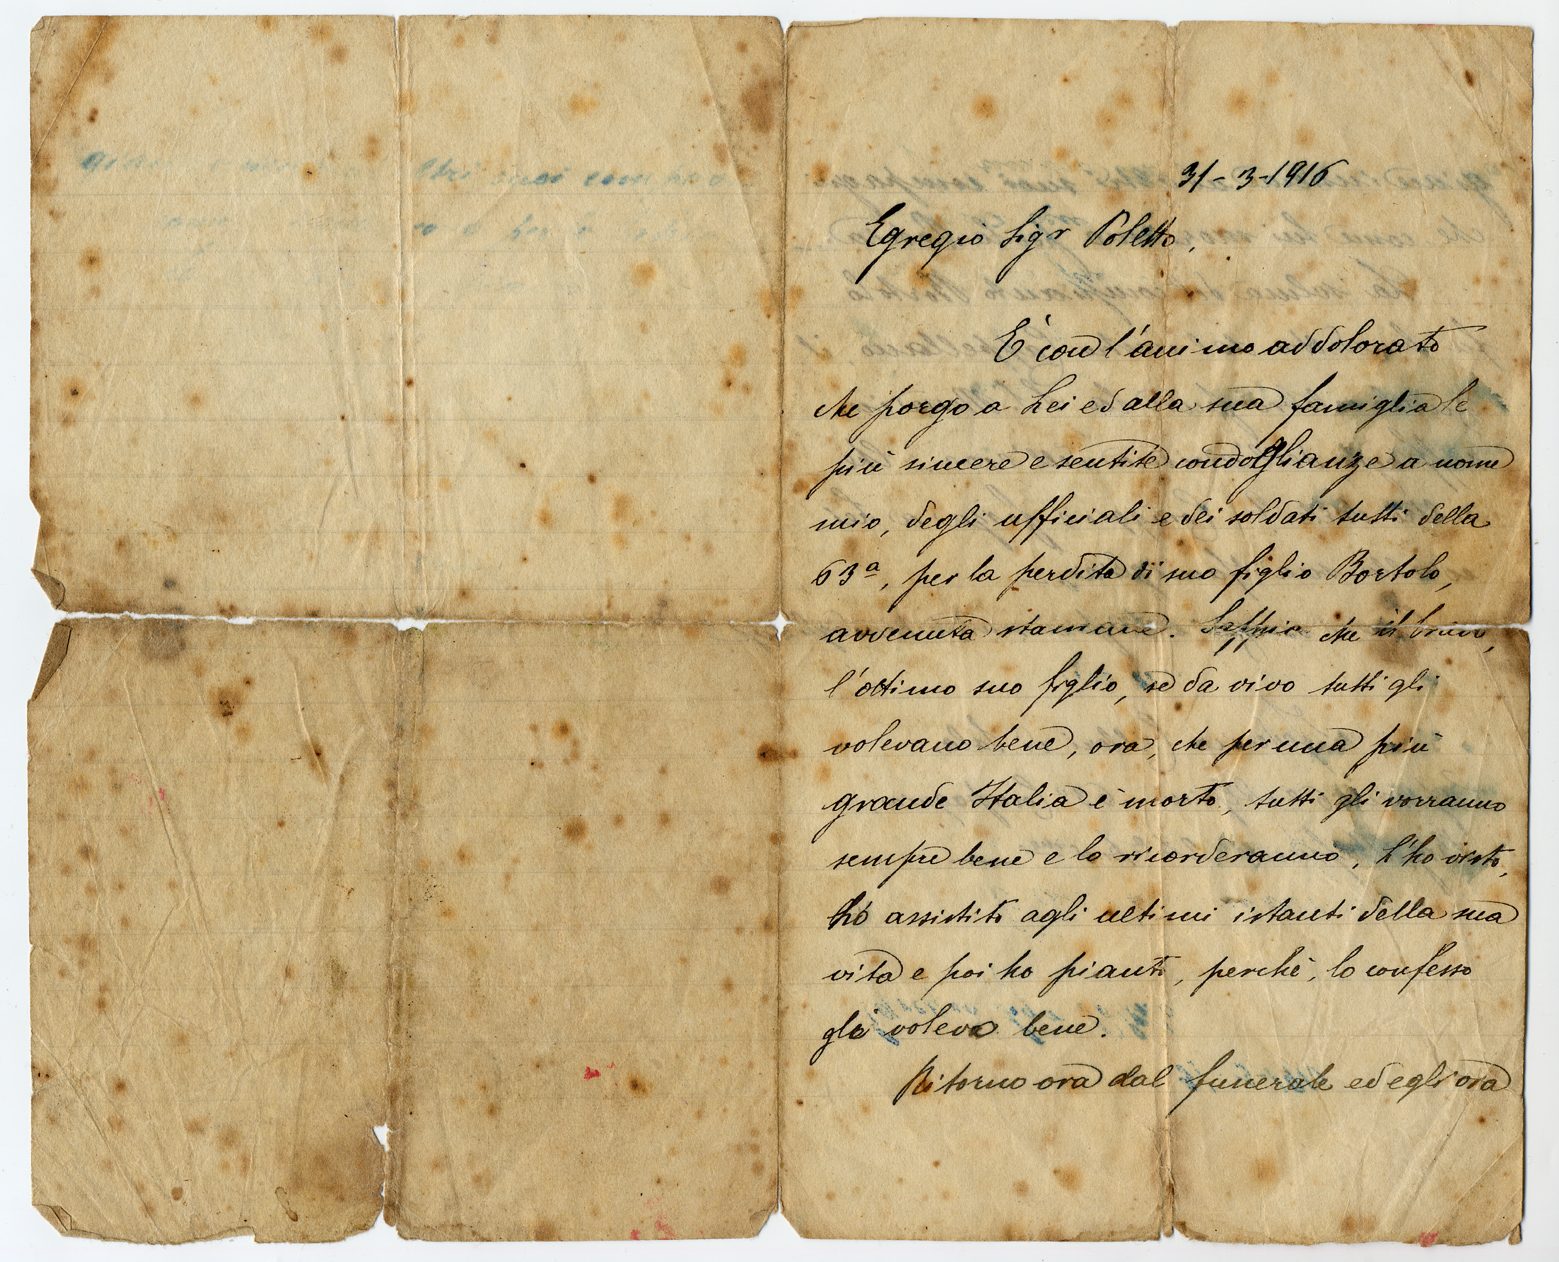 31-3-1916
Egregio Sigr Poletto,
È con l'animo addolorato
che porgo a Lei ed alla sua famiglia le
più sincere e sentite condoglianze a nome
mio, degli ufficiali e dei soldati tutti della
63ª, per la perdita di suo figlio Bortolo,
avvenuta stamane. Sappia che il bravo,
l'ottimo suo figlio, se da vivo tutti gli
volevano bene, ora, che per una più
grande Italia è morto, tutti gli vorranno
sempre bene e lo ricorderanno, l'ho visto,
ho assistito agli ultimi istanti della sua
vita e poi ho pianto, perchè, lo confesso
gli volevo bene.
Ritorno ora dal funerale ed egli ora